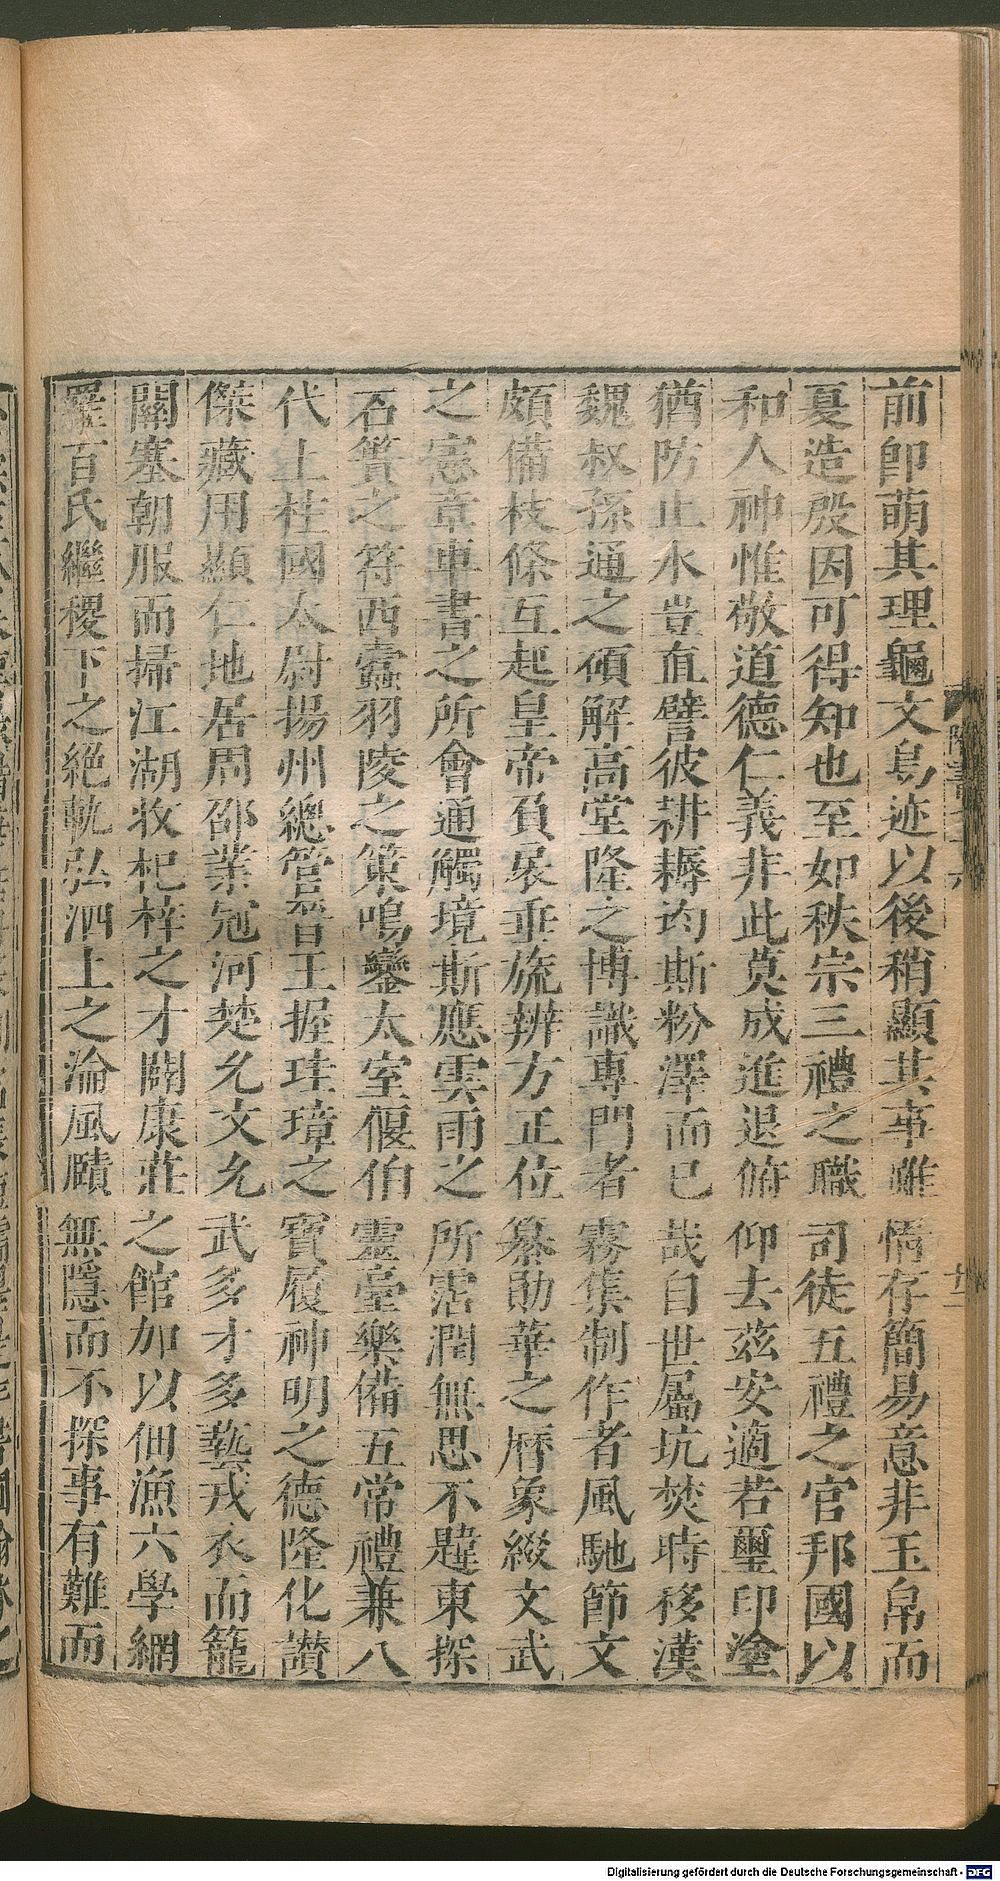 前卽萌其理龜文鳥迹以後稍顯其事雖情存簡易意非玉帛而
夏造殷因可得知也至如秩宗三禮之職司徒五禮之官邦國以
和人神惟敬道德仁義非此莫成進退俯仰去茲安適若璽印塗
猶防止水豈直譬彼耕耨均斯粉澤而已哉自世屬坑焚時移漢
魏叔孫通之碩解高堂隆之博識專門者霧集制作者風馳節文
頗備枝條互起皇帝負扆垂旒辨方正位纂勛華之曆象綴文武
之憲章車書之所會通觸境斯應雲雨之所霑潤無思不韙東探
石簣之符西蠹羽陵之策鳴鑾太室偃伯靈臺樂備五常禮兼八
代上柱國太尉揚州總管晉王握珪璋之寶履神明之德隆化讃
傑藏用顯仁地居周邵業冠河楚允文允武多才多藝戎衣而籠
關塞朝服而掃江湖收杞梓之才闢康莊之館加以佃漁六學網
羅百氏繼稷下之絕軌弘泗上之淪風賾無隱而不探事有難而
隋書
廿二
Digitalisierung gefördert durch die Deutsche Forschungsgemeinschaft - DFG